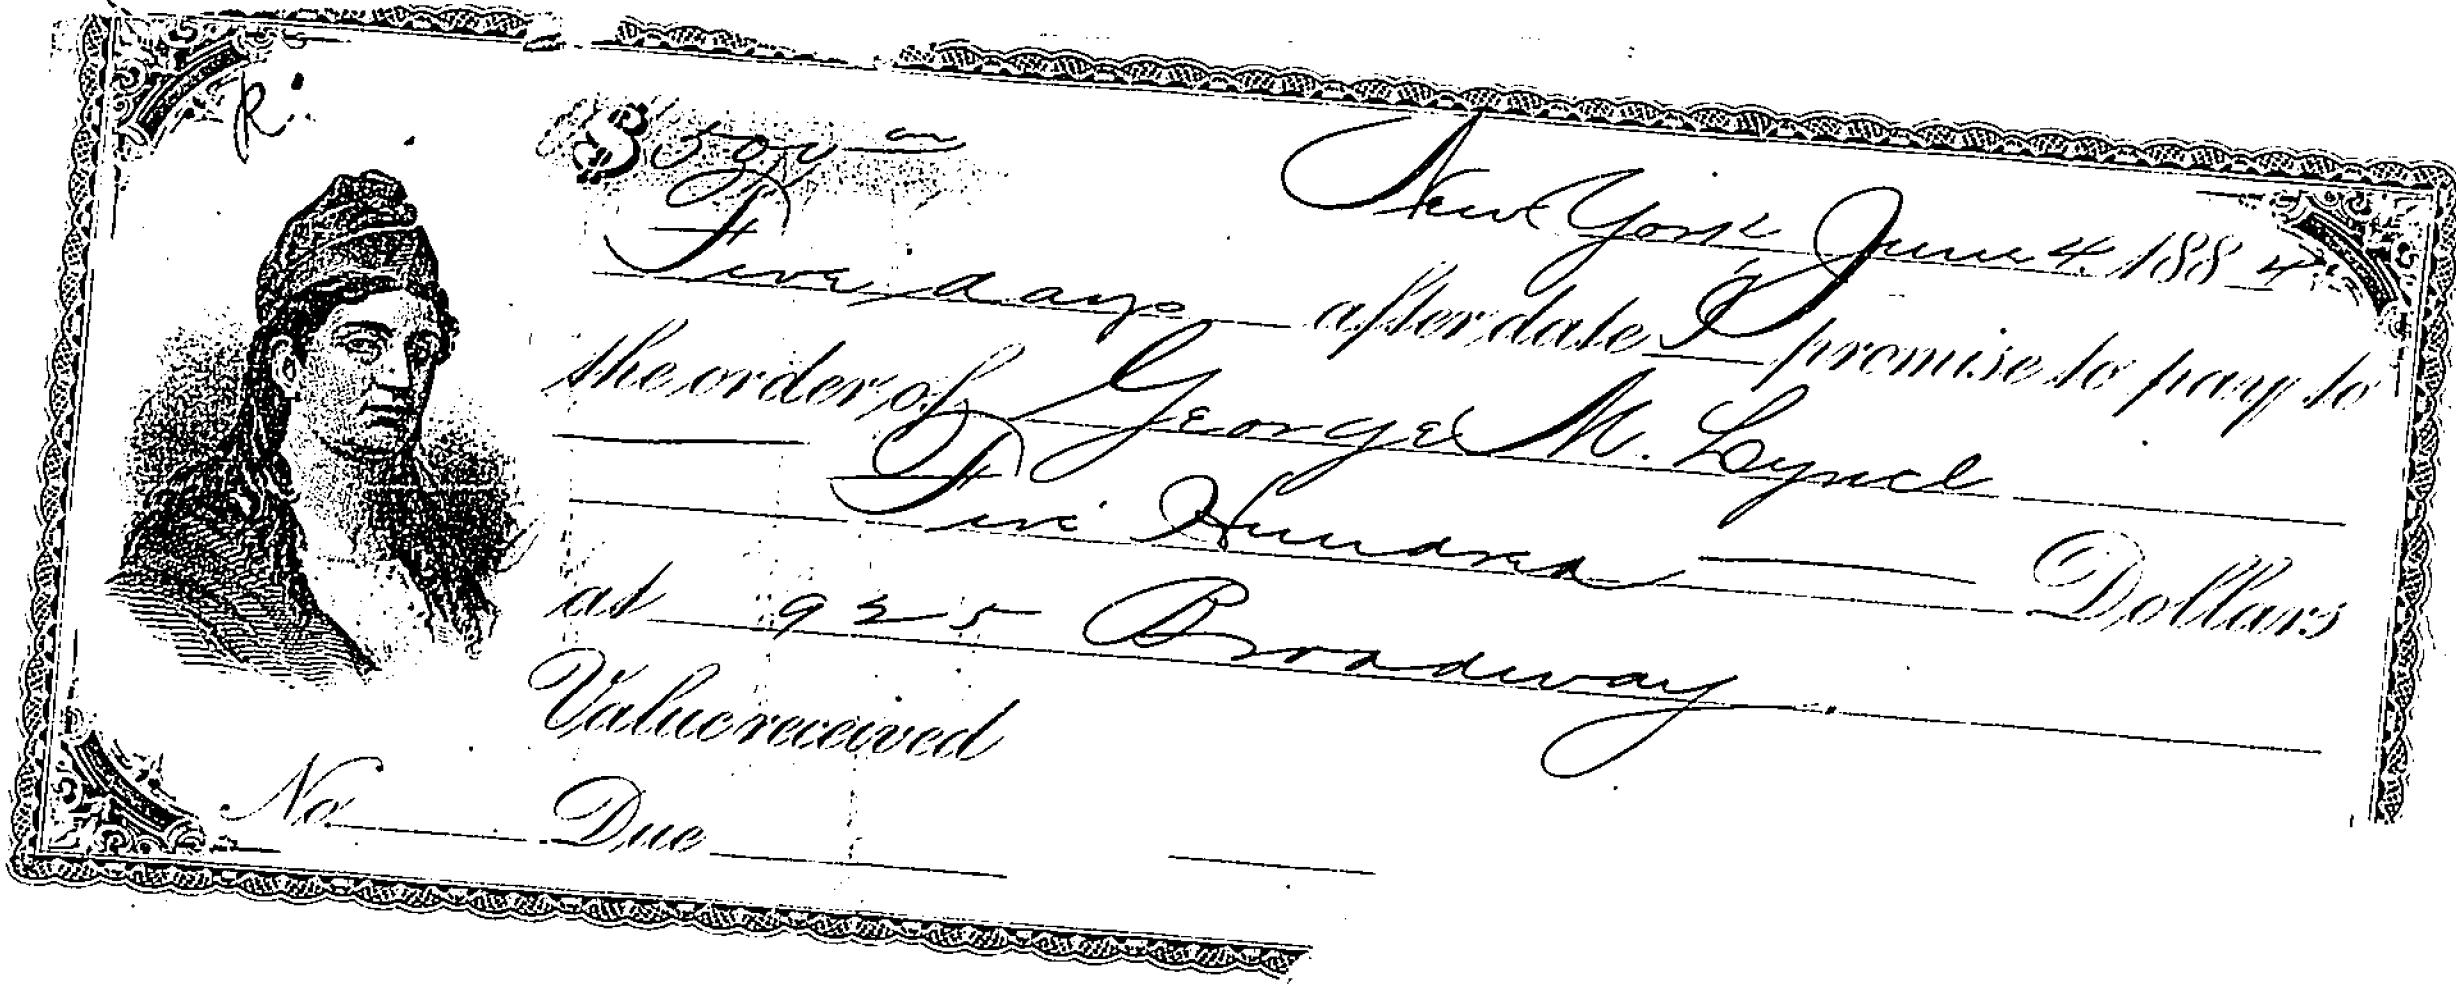 R.
$500 00
New York June 4 1884
Five days after date I promise to pay to
the order of George M. Lynch
Five Hundred Dollars
at 925 Broadway.
Value received
No. Due